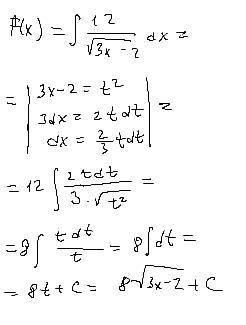 F(x) = ∫ 12/√(3x-2) dx =
= | 3x-2 = t²
3dx = 2t dt
dx = 2/3 t dt | =
= 12 ∫ 2t dt / (3·√t²) =
= 8 ∫ t dt / t = 8 ∫ dt =
= 8t + C = 8√(3x-2) + C